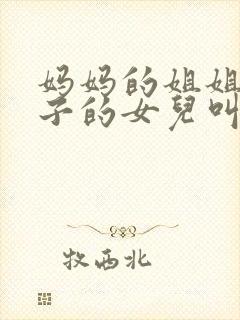 妈妈的姐姐
子的女兒叫
牧西北